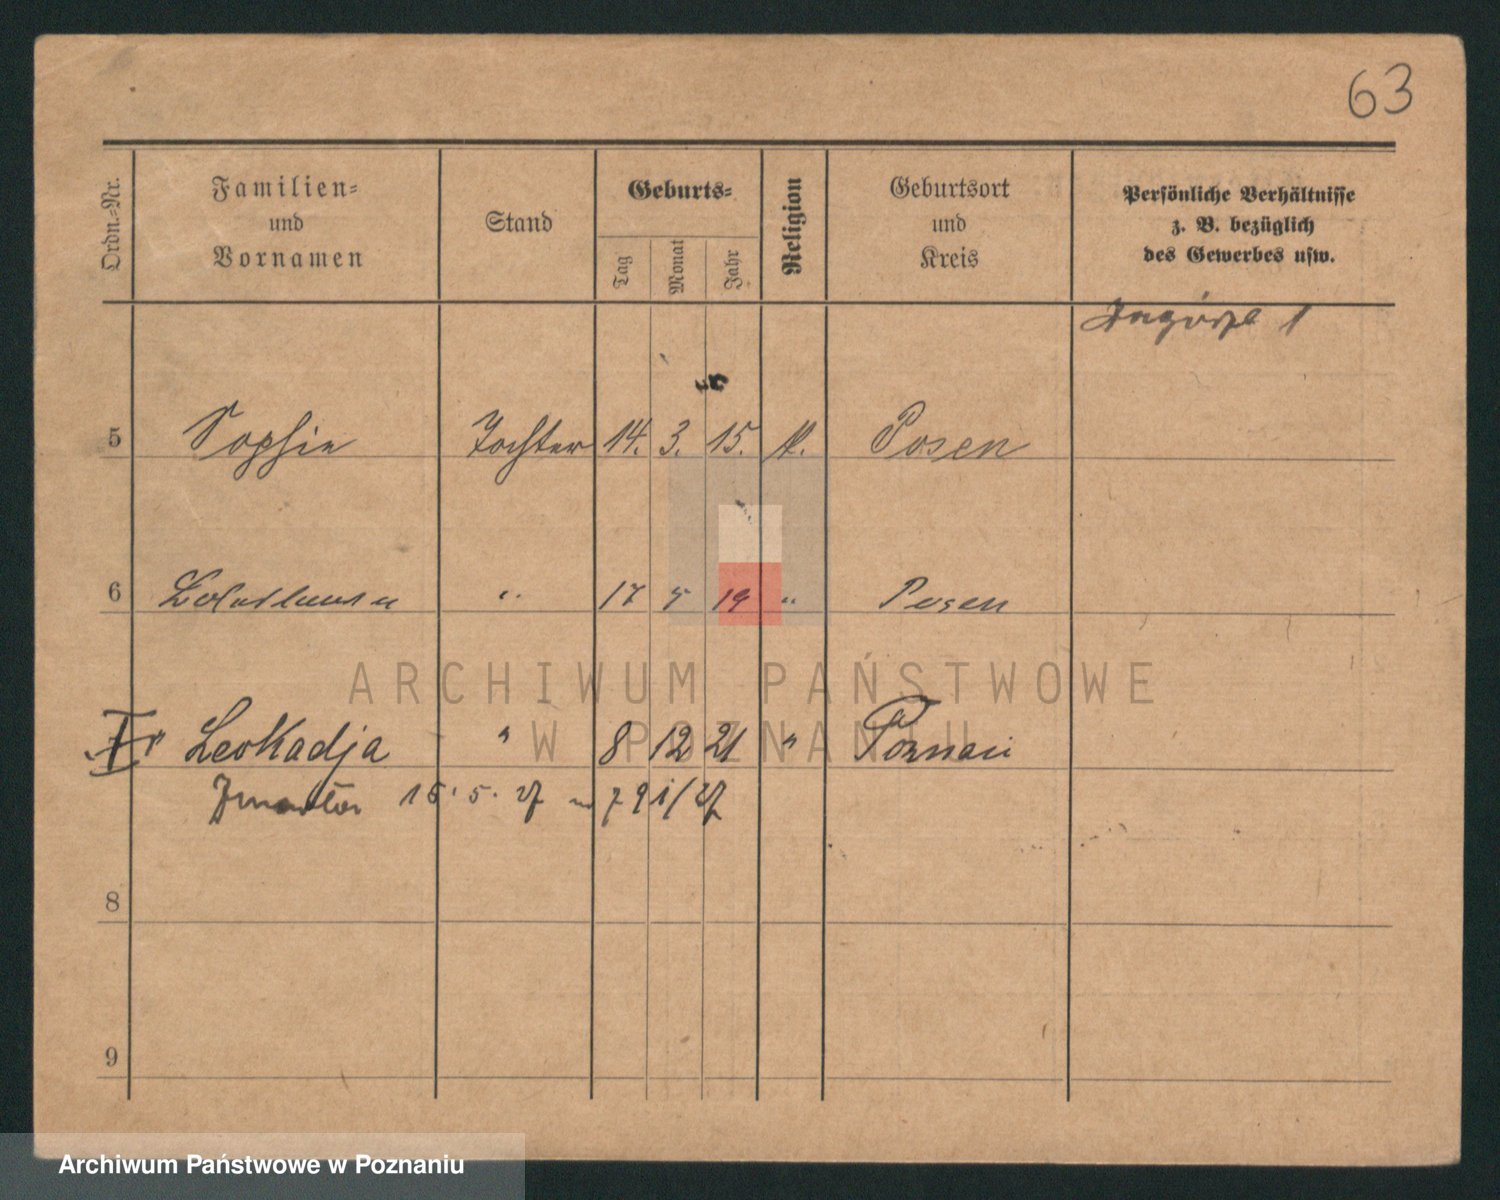 63
Ordn.-Nr.
Familien-
und
Vornamen
Stand
Geburts-
Tag
Monat
Jahr
Religion
Geburtsort
und
Kreis
Persönliche Verhältnisse
z. B. bezüglich
des Gewerbes usw.
5 Sophie Tochter 14. 3. 15. k. Posen
6 " 17 19 " Posen
ARCHIWUM PAŃSTWOWE
W POZNANIU
Leokadja " 8 12 21 " Poznań
15. 5. 27
8
9
Archiwum Państwowe w Poznaniu